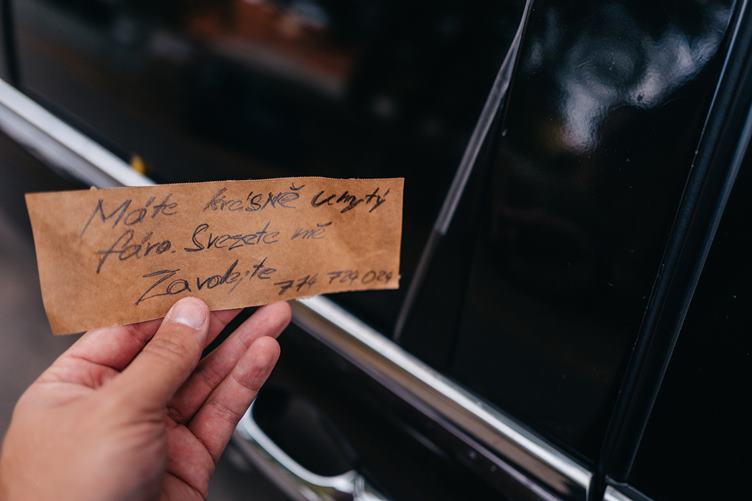 Máte krásně umytý
fáro. Svezete mě
Zavolejte 774 724 024